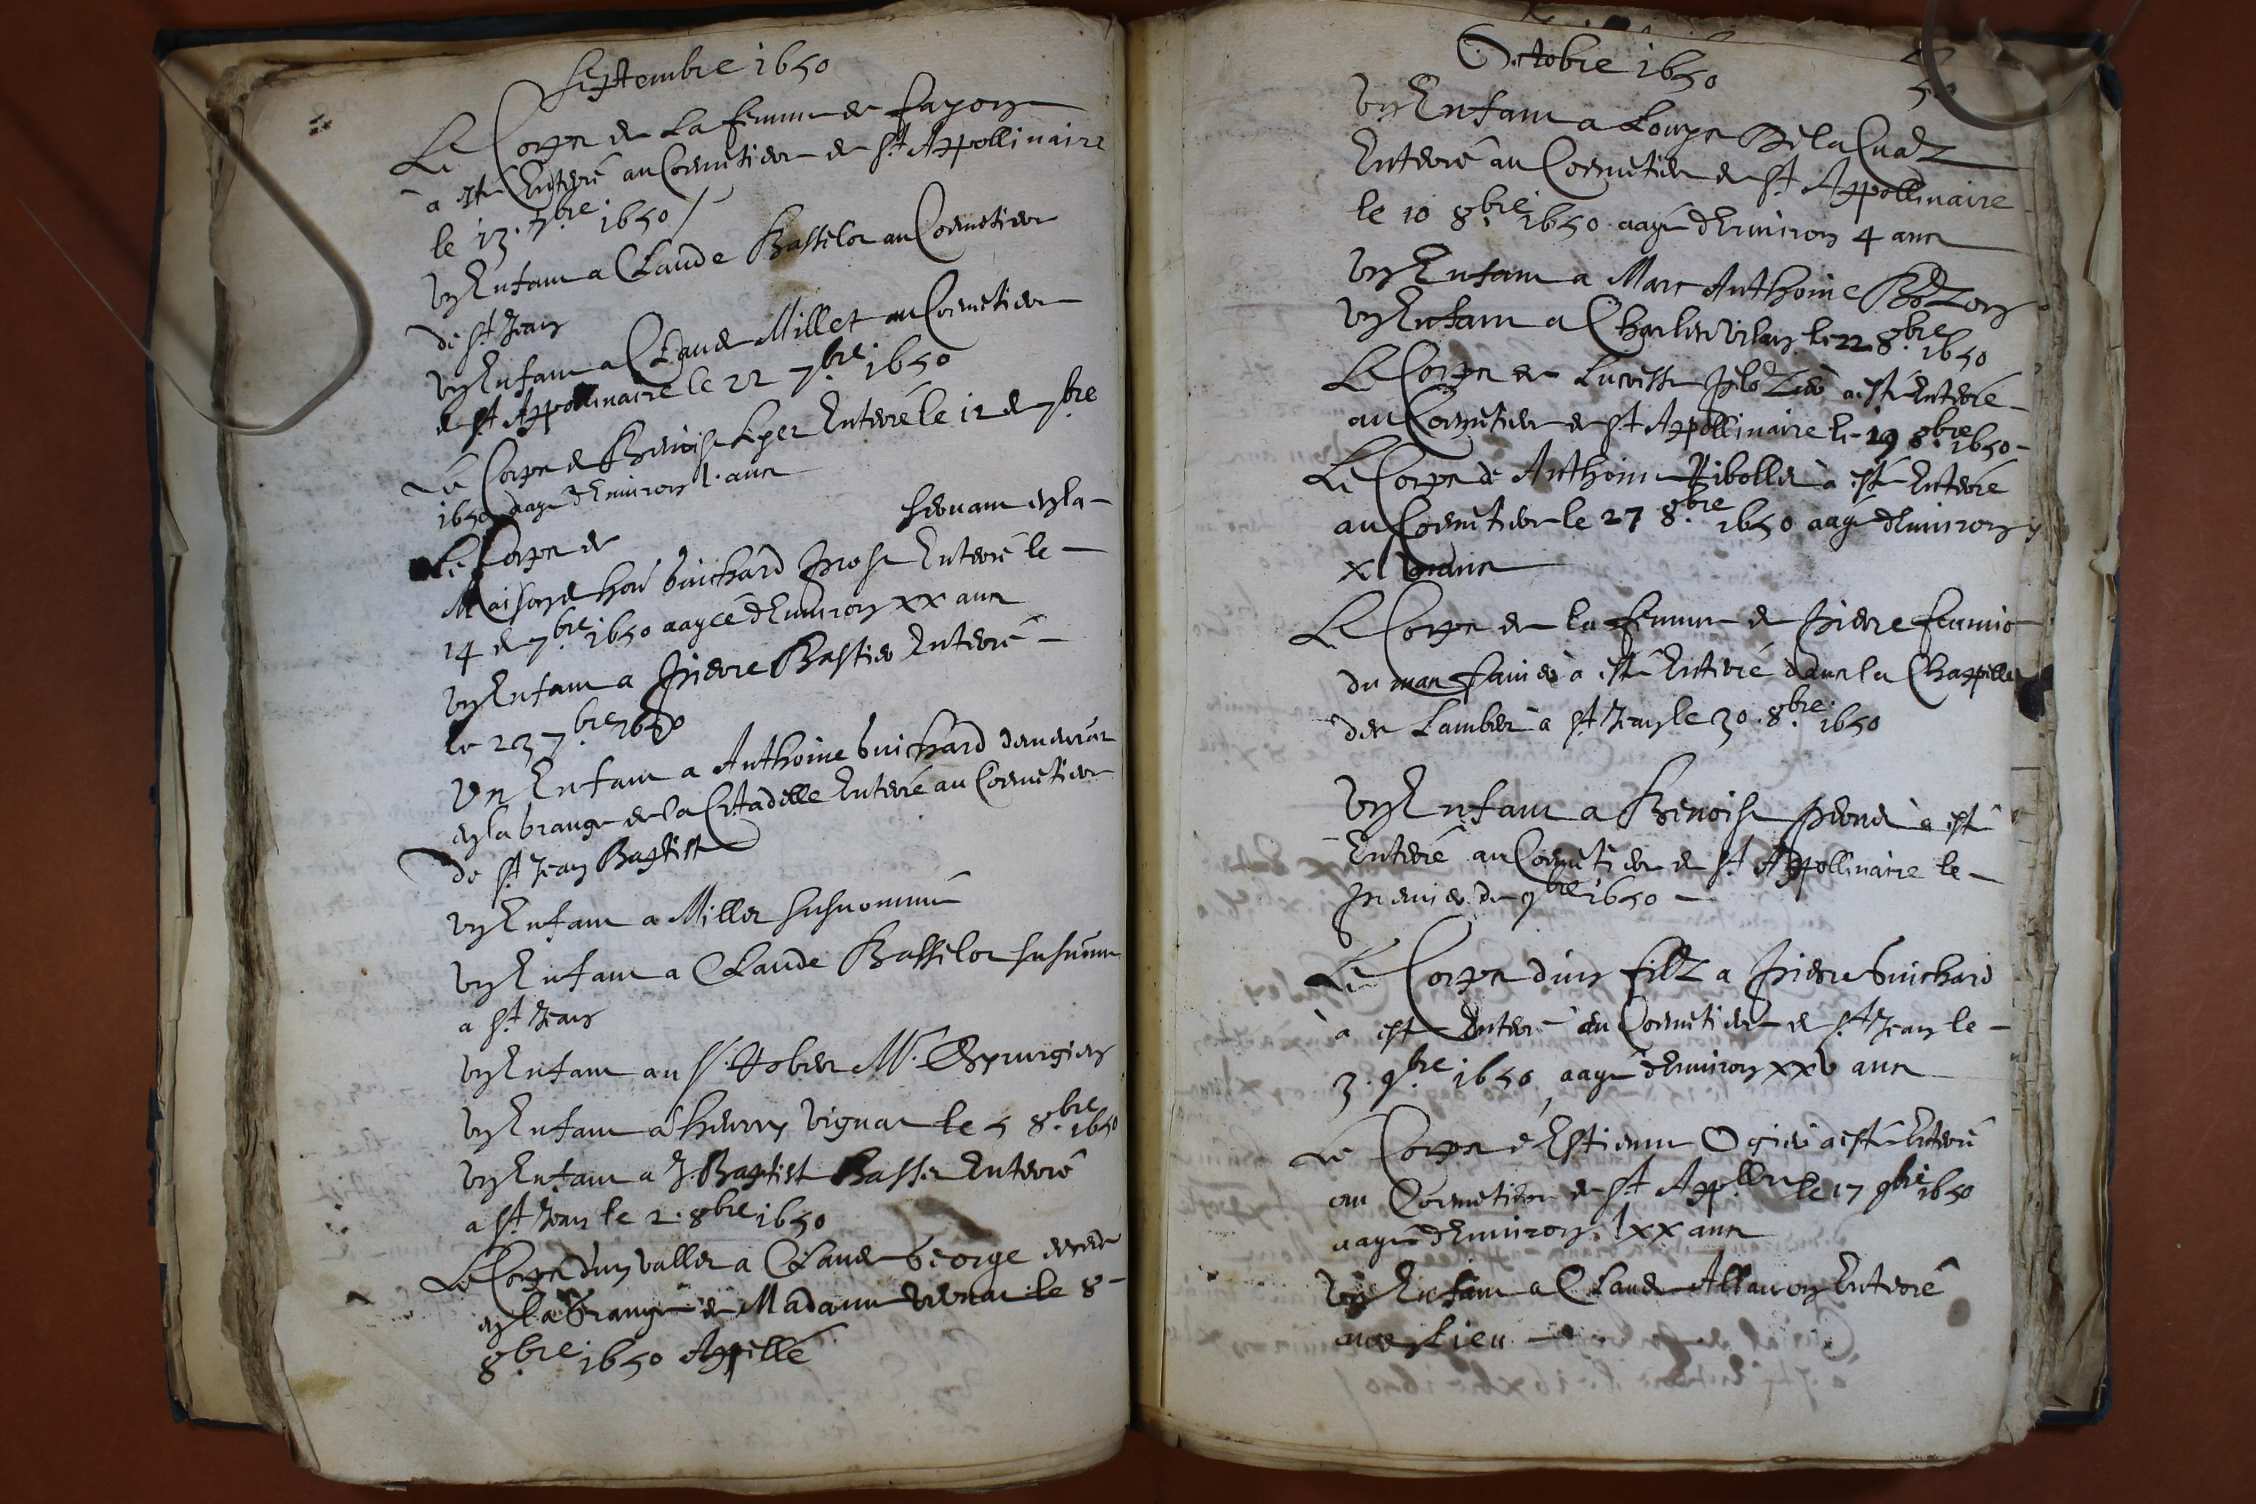 Septembre 1650
Le Corps de la femme de fayon
à esté Enterré au Cemetiere de st. Appollinaire
le 13. 7bre. 1650 /
Vn Enfant a Claude Basselot au Cemetiere
de st Jean
Vn Enfant a Claude Millet au Cemetiere
de st Appollinaire le 22 7bre. 1650
Le Corps de Benoist Enterré le 12 de 7bre
1650 aagé d'Enuiron l. ans
Le Corps de seruant en la
Maison de Guichard Enterré le
14 de 7bre. 1650 aagée d'Enuiron xx ans
Vn Enfant a Pierre Bastier Enterré
le 23 7bre 1650
Vn Enfant a Anthoine Guichard demeurãt
en la Grange de la Citadelle Enterré au Cemetiere
de st. Jean Baptiste
Vn Enfant a Millet susnommé
Vn Enfant a Claude Basselot susnomé
a st. Jean
Vn Enfant au sr. Mr. Chyrurgien
Vn Enfant à Henry Vignat le 5 8.bre 1650
Vn Enfant a J. Baptist Basset Enterré
a st. Jean le 2. 8bre 1650
Le Corps d'un vallet a Claude George decedé
en la Grange de Madame le 8
8bre. 1650 Appellé
Octobre 1650
Vn Enfant a Loupe
Enterré au Cemetiere de st. Appollinaire
le 10 8.bre 1650. aagé d'Enuiron 4 ans
Vn Enfant a Marc Anthoine
Vn Enfant a Charles Vilain le 22 8.bre 1650
Le Corps de Lucresse a esté Enterré
au Cemetiere de st Appollinaire le 19 8.bre 1650
Le Corps de Anthoine Ribollet à esté Enterré
au Cemetiere le 27 8.bre 1650 aagé d'Enuiron
ans
Le Corps de la femme de Pierre
du mas à esté Enterré dans la Chappelle
des Lambert a st Jean le 30. 8bre. 1650
Vn Enfant a Benoist à esté
Enterré au Cemetiere de st. Appollinaire le
premier de 9bre 1650
Le Corps d'un filz a Pierre Guichard
à esté Enterré au Cemetiere de st. Jean le
3. 9bre. 1650 aagé d'Enuiron xxv ans
Le Corps d'Estienne Ogier a esté Enterré
au Cemetiere de st. Appllre le 17 9bre 1650
aagé d'Enuiron lxx ans
Vn Enfant a Claude Enterré
lieu